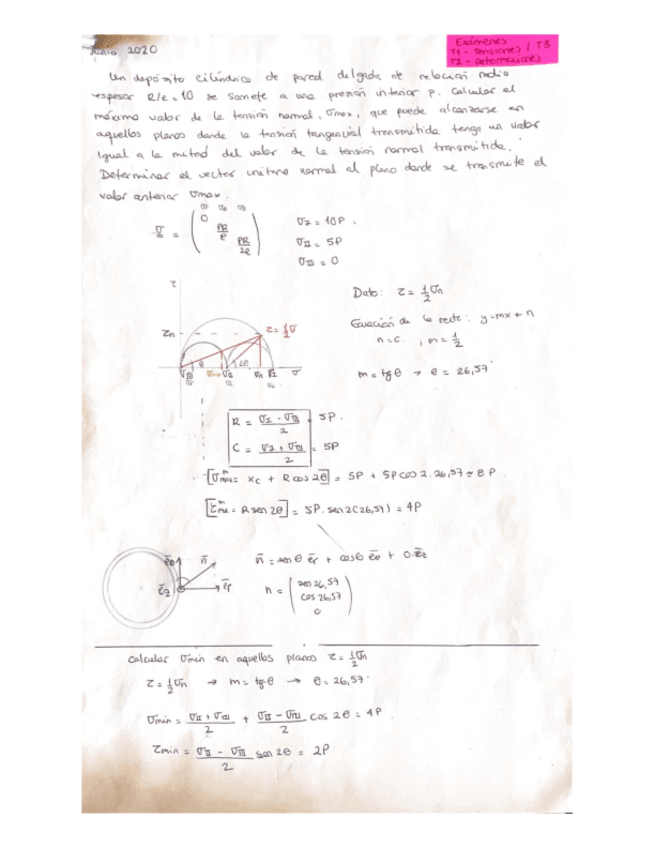 Junio 2020
Exámenes
T1 - Tensiones / T3
T2 - Deformaciones
Un depósito cilíndrico de pared delgada de relación radio
espesor R/e = 10 se somete a una presión interior P. Calcular el
máximo valor de la tensión normal, σmax, que puede alcanzarse en
aquellos planos donde la tensión tangencial transmitida tenga un valor
igual a la mitad del valor de la tensión normal transmitida.
Determinar el vector unitario normal al plano donde se transmite el
valor anterior σmax.
σ = ( 0 PR/e PR/2e )
σI = 10P =
σII = 5P
σIII = 0
τ
Dato: τ = 1/2 σn
τn
τ = 1/2 σ
Ecuación de la recta: y = mx + n
n = 0, m = 1/2
θ
2θ
σn
σ
m = tgθ → θ = 26,57°
R = (σI - σIII)/2 = 5P.
C = (σI + σIII)/2 = 5P
[σmax = xc + R cos 2θ] = 5P + 5P cos 2·26,57 = 8P.
= R sen 2θ] = 5P·sen 2(26,57) = 4P
eθ n
ez er
n = senθ er + cosθ eθ + 0·ez
n = ( sen 26,57 cos 26,57 0 )
Calcular σmin en aquellos planos τ = 1/2 σn
τ = 1/2 σn → m = tgθ → θ = 26,57°
σmin = (σII + σIII)/2 + (σII - σIII)/2 cos 2θ = 4P.
τmin = (σII - σIII)/2 sen 2θ = 2P